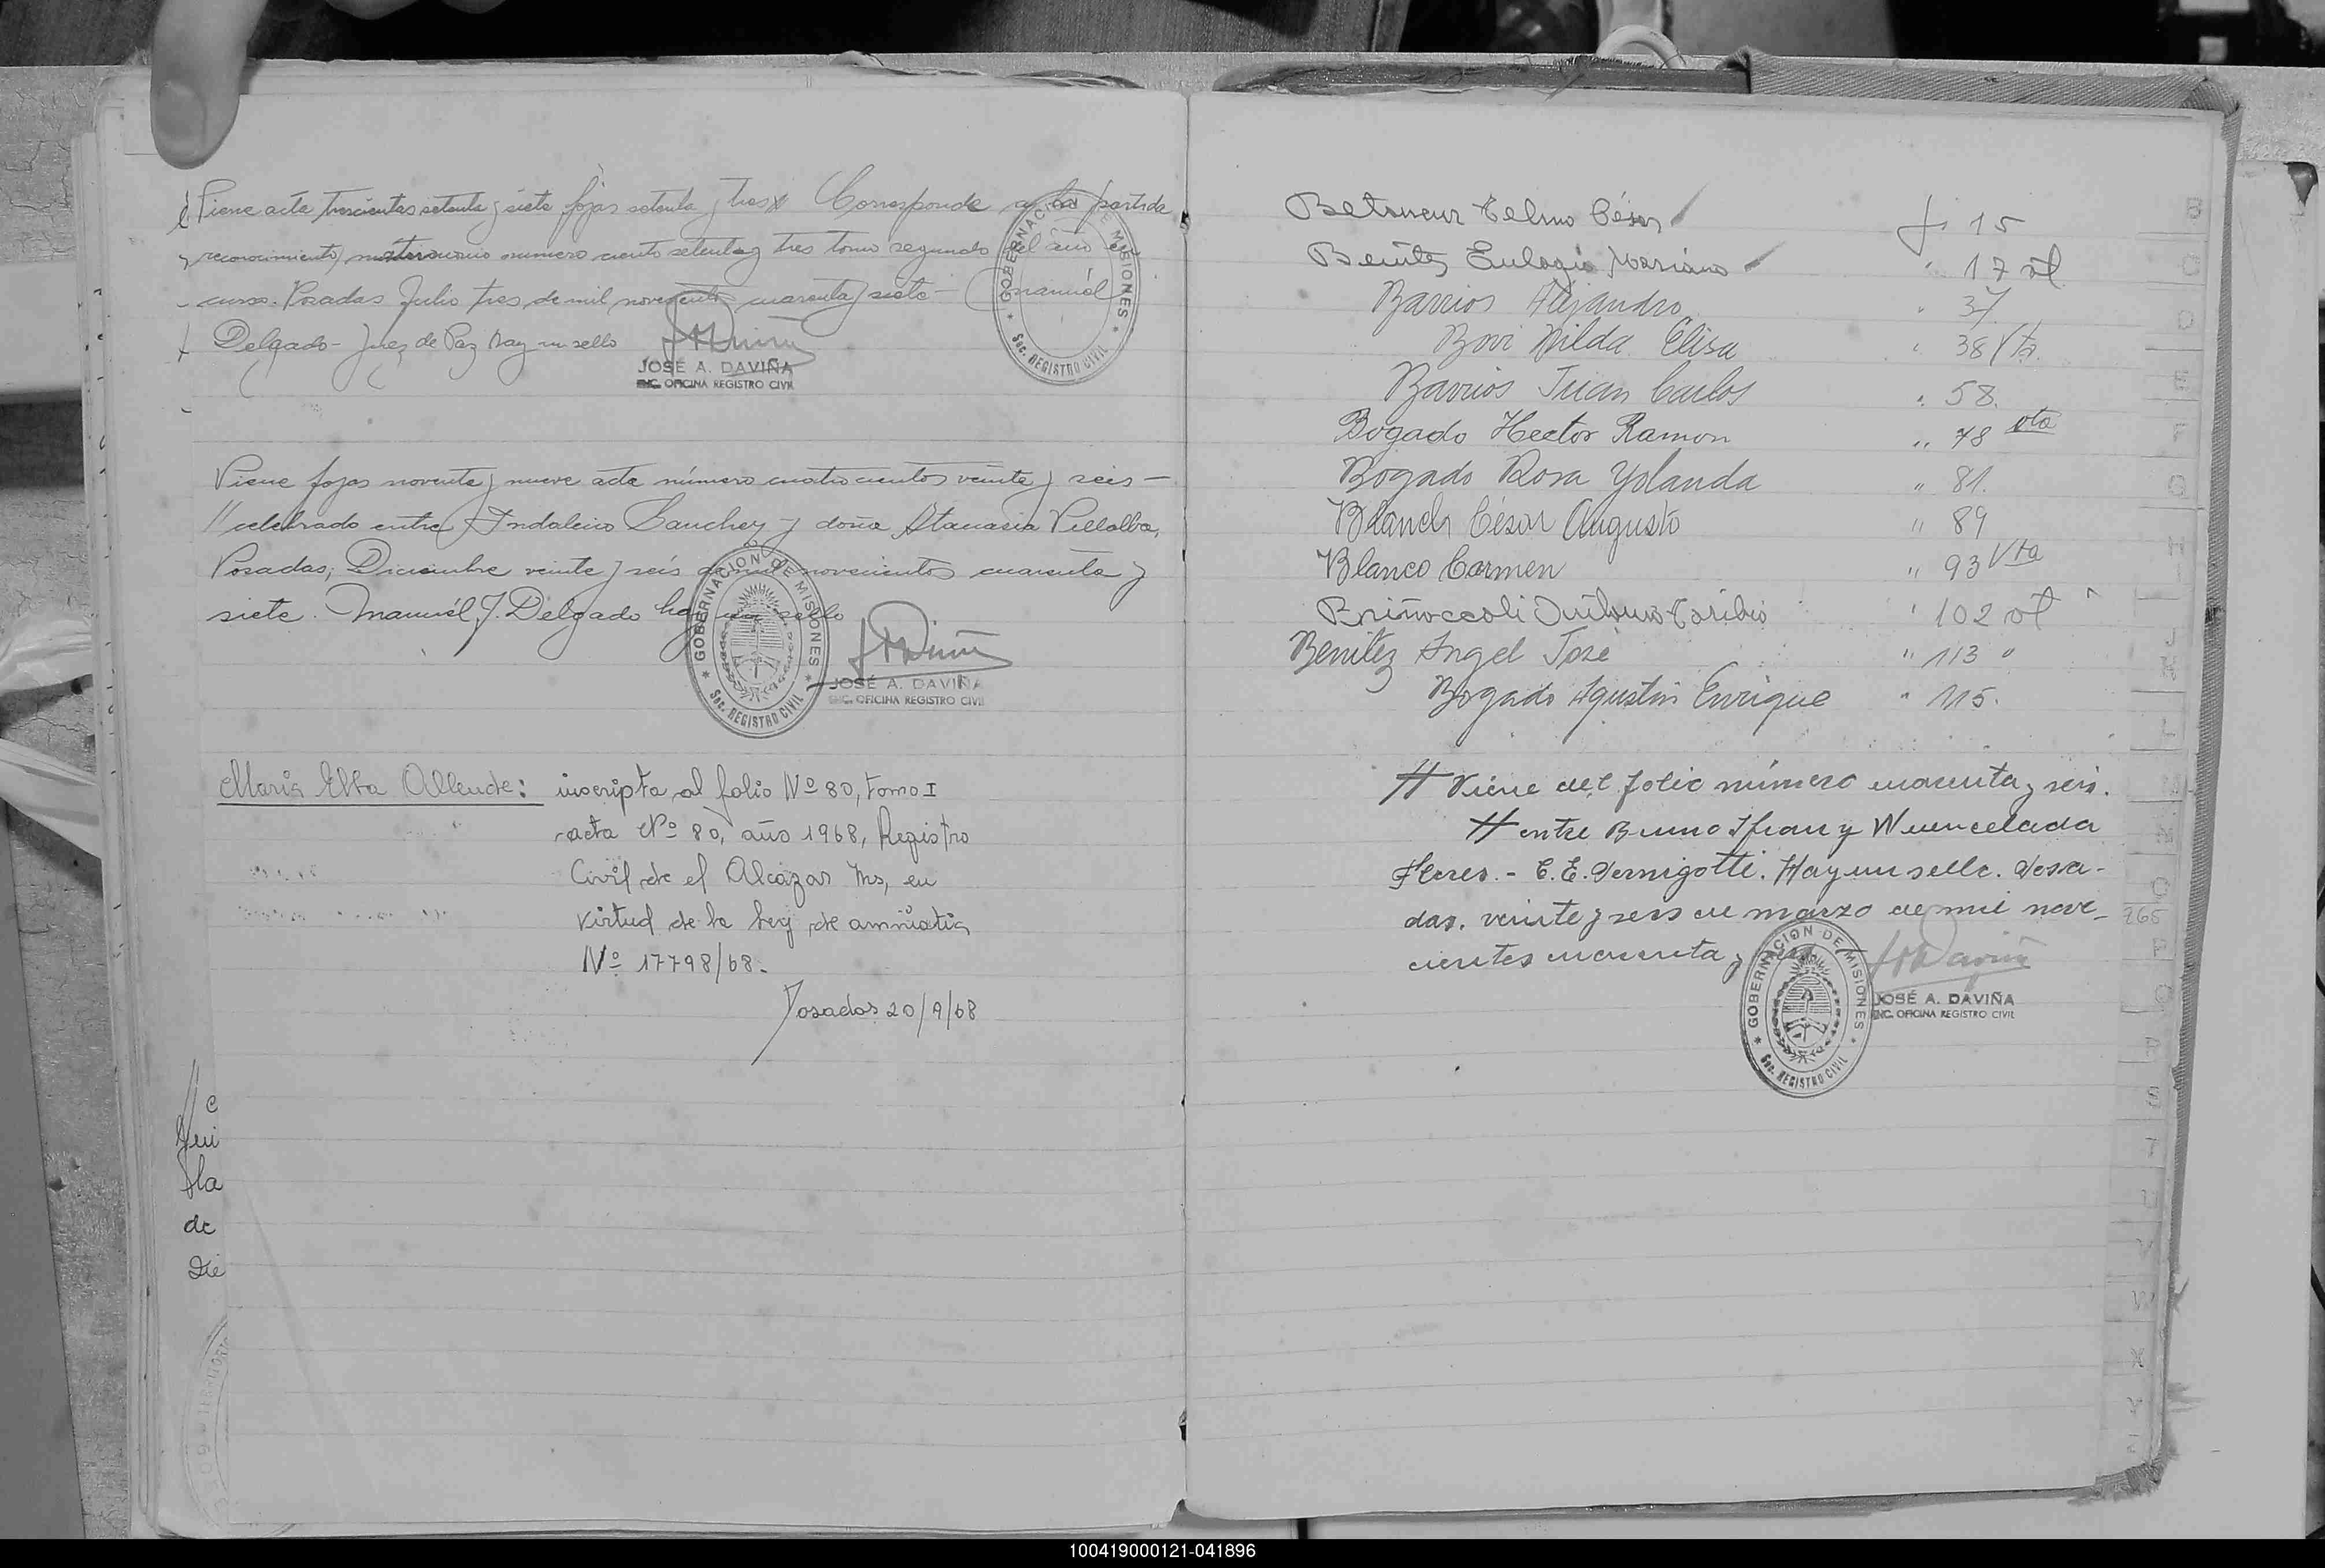 Viene acta trescientas setenta y siete fojas setenta y tres // Corresponde a la partida
reconocimiento matrimonio número ciento setenta y tres tomo segundo del año en
curso. Posadas Julio tres de mil novecientos cuarenta y siete - Manuél
Delgado - Juez de Paz hay un sello
JOSÉ A. DAVIÑA
ENC. OFICINA REGISTRO CIVIL
GOBERNACION DE MISIONES
Sec. REGISTRO CIVIL
Viene fojas noventa y nueve acta número cuatrocientos veinte y seis -
// celebrado entre Indalecio Sanchez y doña Atanasia Villalba,
Posadas, Diciembre veinte y seis de mil novecientos cuarenta y
siete. Manuél J. Delgado hay un sello
GOBERNACION DE MISIONES
Sec. REGISTRO CIVIL
JOSÉ A. DAVIÑA
ENC. OFICINA REGISTRO CIVIL
María Elba Allende: inscripta al folio Nº 80, tomo I
acta Nº 80, año 1968, Registro
Civil de el Alcázar Ms, en
virtud de la ley de amnistia
Nº 17798/68.
Posadas 20/9/68
c
de
Die
Betancur Telmo César f. 15
Benítez Eulogio Mariano " 17 vt
Barrios Alejandro " 37
Bovi Nilda Elisa " 38 Vta.
Barrios Juan Carlos " 58.
Bogado Hector Ramon " 78 vta
Bogado Rosa Yolanda " 81.
Blanch César Augusto " 89
Blanco Carmen " 93 Vta
Toribio " 102 vt
Benitez Angel José " 113 "
Bogado Agustin Enrique " 115.
// Viene del folio número cuarenta y seis.
// entre Bruno Ifran y Wuencelada
Flores. - C. E. Vernigotti. Hay un sello. Posa-
das. veinte y seis de marzo de mil nove-
cientos cuarenta y
GOBERNACION DE MISIONES
Sec. REGISTRO CIVIL
JOSÉ A. DAVIÑA
ENC. OFICINA REGISTRO CIVIL
100419000121-041896